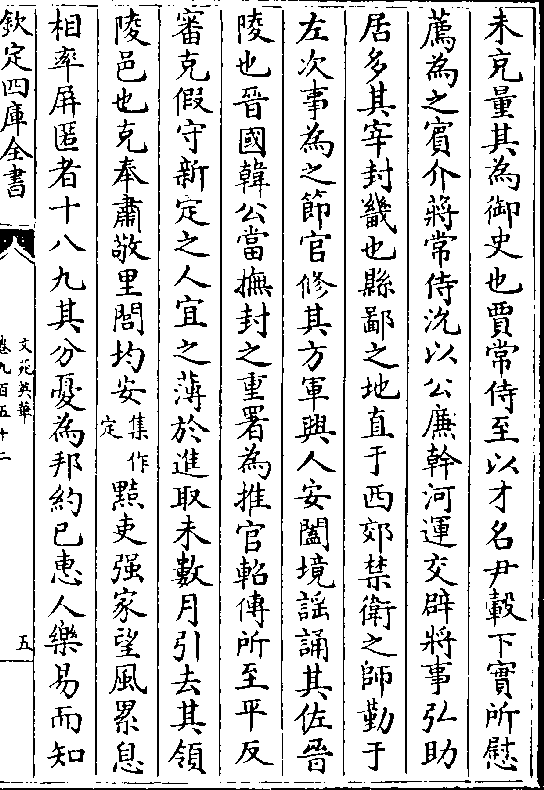 未克量其為御史也賈常侍至以才名尹轂下實所慰
薦為之賓介蔣常侍沇以公廉幹河運交辟將事弘助
居多其宰封畿也縣鄙之地直于西郊禁衛之師勤于
左次事為之節官修其方軍興人安闔境謡誦其佐晉
陵也晉國韓公當撫封之重署為推官軺傳所至平反
審克假守新定之人宜之薄於進取未數月引去其領
陵邑也克奉肅敬里閭均安集作定黠吏强家望風累息
相率屏匿者十八九其分憂為邦約已惠人樂易而知
欽定四庫全書
文苑英華
卷九百五十二
五